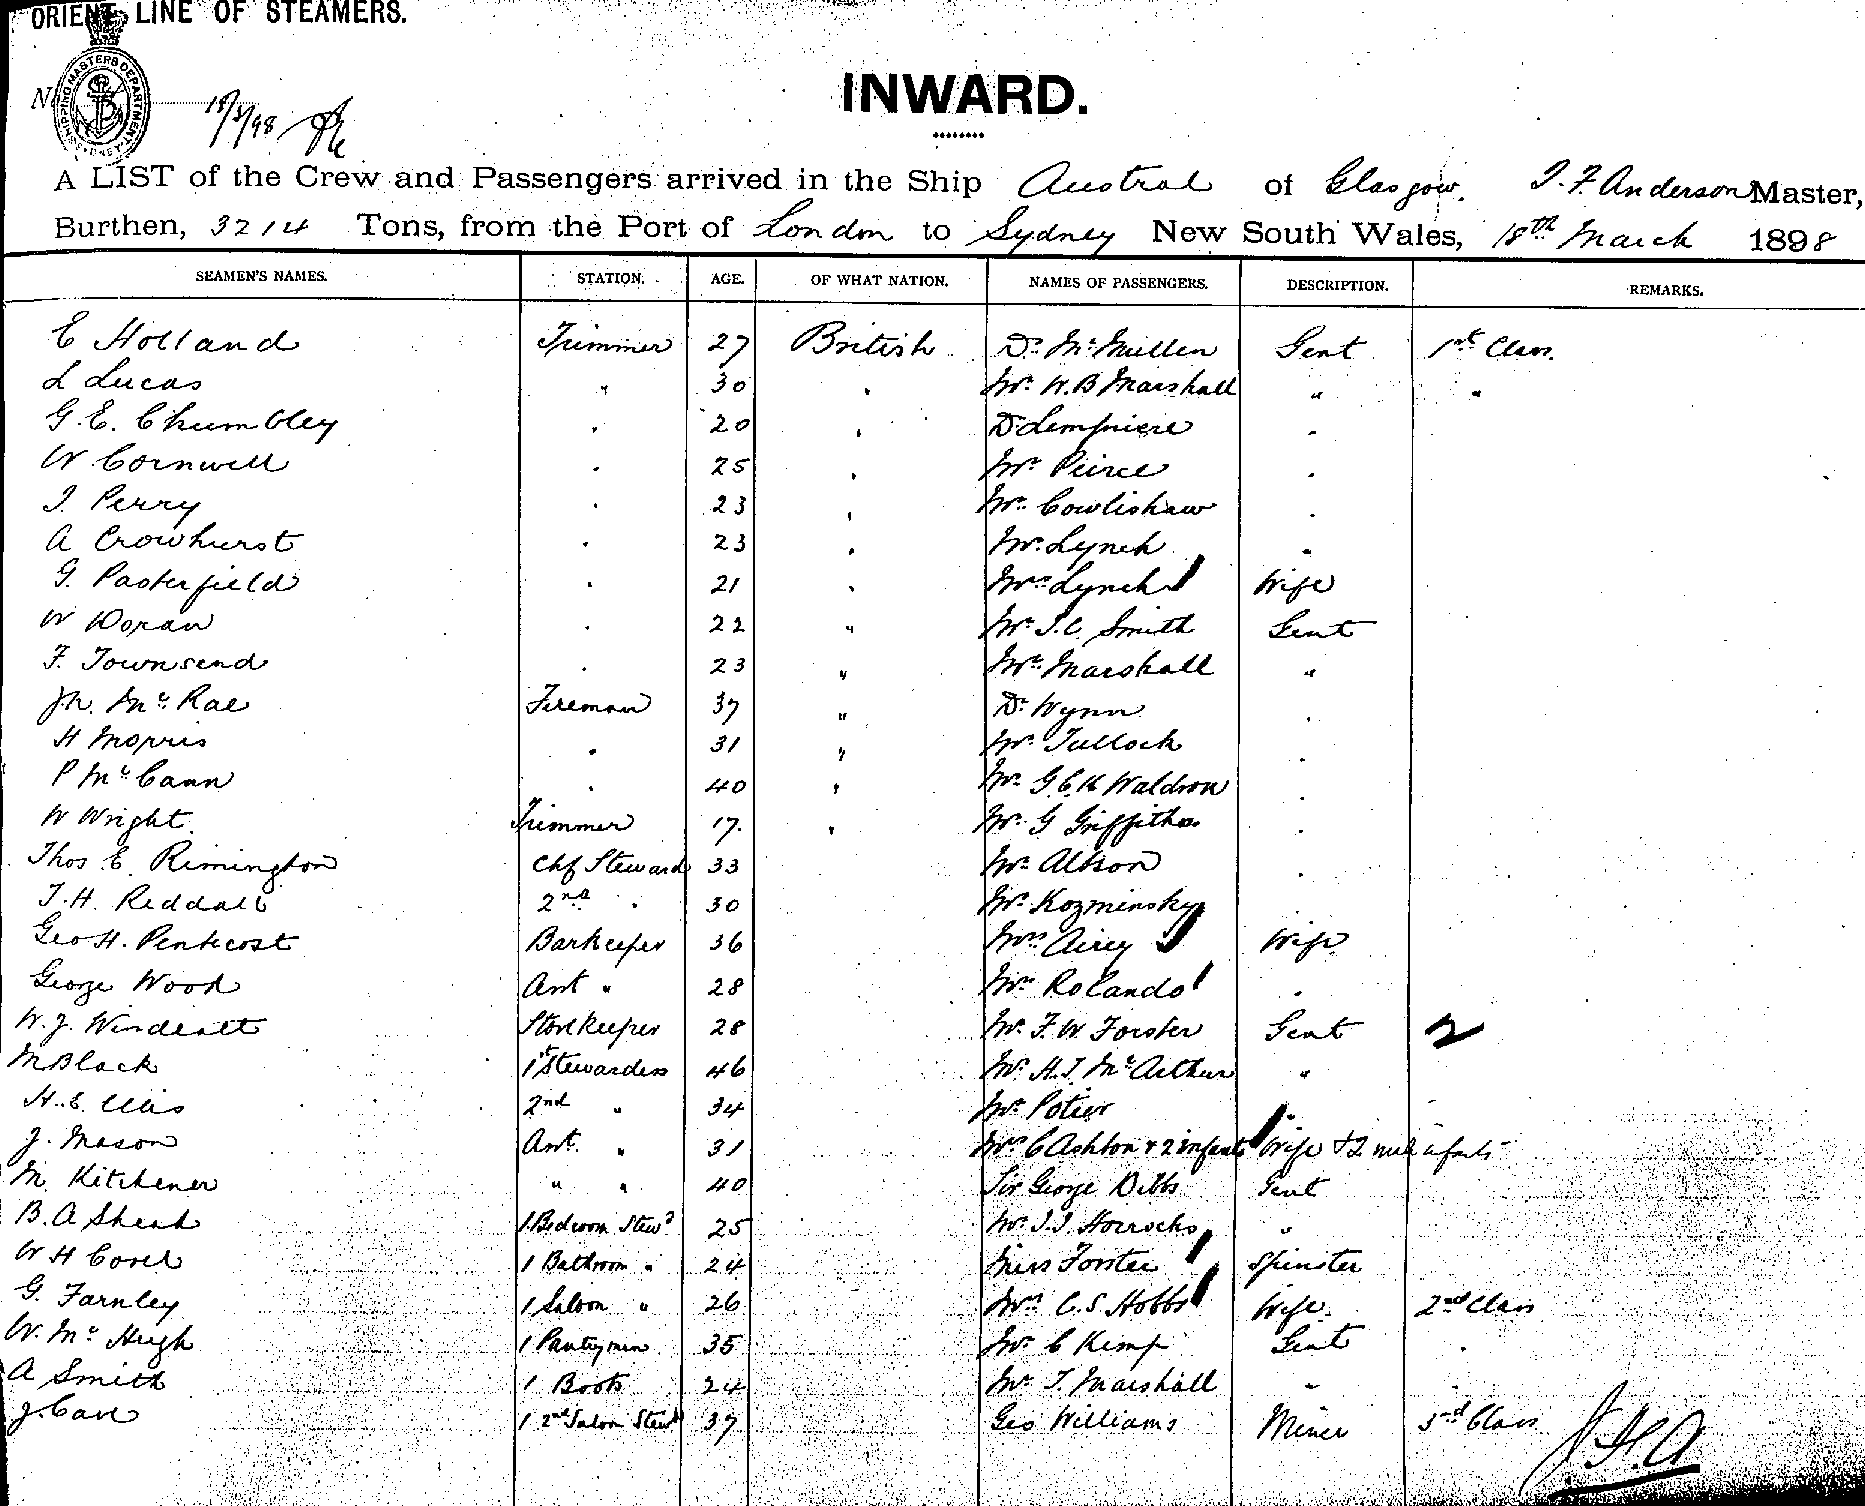 ORIENT LINE OF STEAMERS.
SHIPPING MASTERS DEPARTMENT SYDNEY
18/3/98
INWARD.
A LIST of the Crew and Passengers arrived in the Ship Austral of Glasgow. J. F. Anderson Master,
Burthen, 3214 Tons, from the Port of London to Sydney New South Wales, 18th March 1898
SEAMEN'S NAMES. STATION. AGE. OF WHAT NATION. NAMES OF PASSENGERS. DESCRIPTION. REMARKS.
E Holland Trimmer 27 British Dr McMillen Gent 1st Class
L Lucas " 30 " Mr W. B Marshall " "
G. E. Chumbley " 20 " Dr Lempriere "
W Cornwell " 25 " Mr Peirce "
J. Perry " 23 " Mr Cowlishaw "
A Crowhurst " 23 " Mr Lynch "
G. Pasterfield " 21 " Mrs Lynch Wife
W Doran " 22 " Mr J. C. Smith Gent
F. Townsend " 23 " Mr Marshall "
Jn. McRae Fireman 37 " Dr Wynn "
H Morris " 31 " Mr Tullock "
P McCann " 40 " Mr G. C. K Waldron "
W Wright Trimmer 17 " Mr G Griffiths "
Thos E. Rimington Chf Steward 33 Mr Alkson "
T. H. Reddall 2nd " 30 Mr Kozminsky "
Geo H. Pentecost Barkeeper 36 Mrs Airey Wife
George Wood Asst " 28 Mrs Rolando "
W. J. Windeatt Storekeeper 28 Mr F. W Forster Gent 2
M Black 1st Stewardess 46 Mr H. J. McArthur "
H. E. Ellis 2nd " 34 Mr Potier "
J. Mason Asst. " 31 Mrs C Ashton & 2 infants Wife & 2 male infants
M. Kitchener " " 40 Sir George Dibbs Gent
B. A Sheah 1 Bedroom Stewd 25 Mr J. J. Horrocks "
W H Covell 1 Bathroom " 24 Miss Forster Spinster
G. Farnley 1 Saloon " 26 Mrs C. S. Hobbs Wife 2nd Class
W. McHugh 1 Pantryman 35 Mr C Kemp Gent "
A Smith 1 Boots 24 Mr T. Marshall " "
J. Carl 1 2nd Saloon Stewd 37 Geo Williams Miner 3rd Class
J. F. A